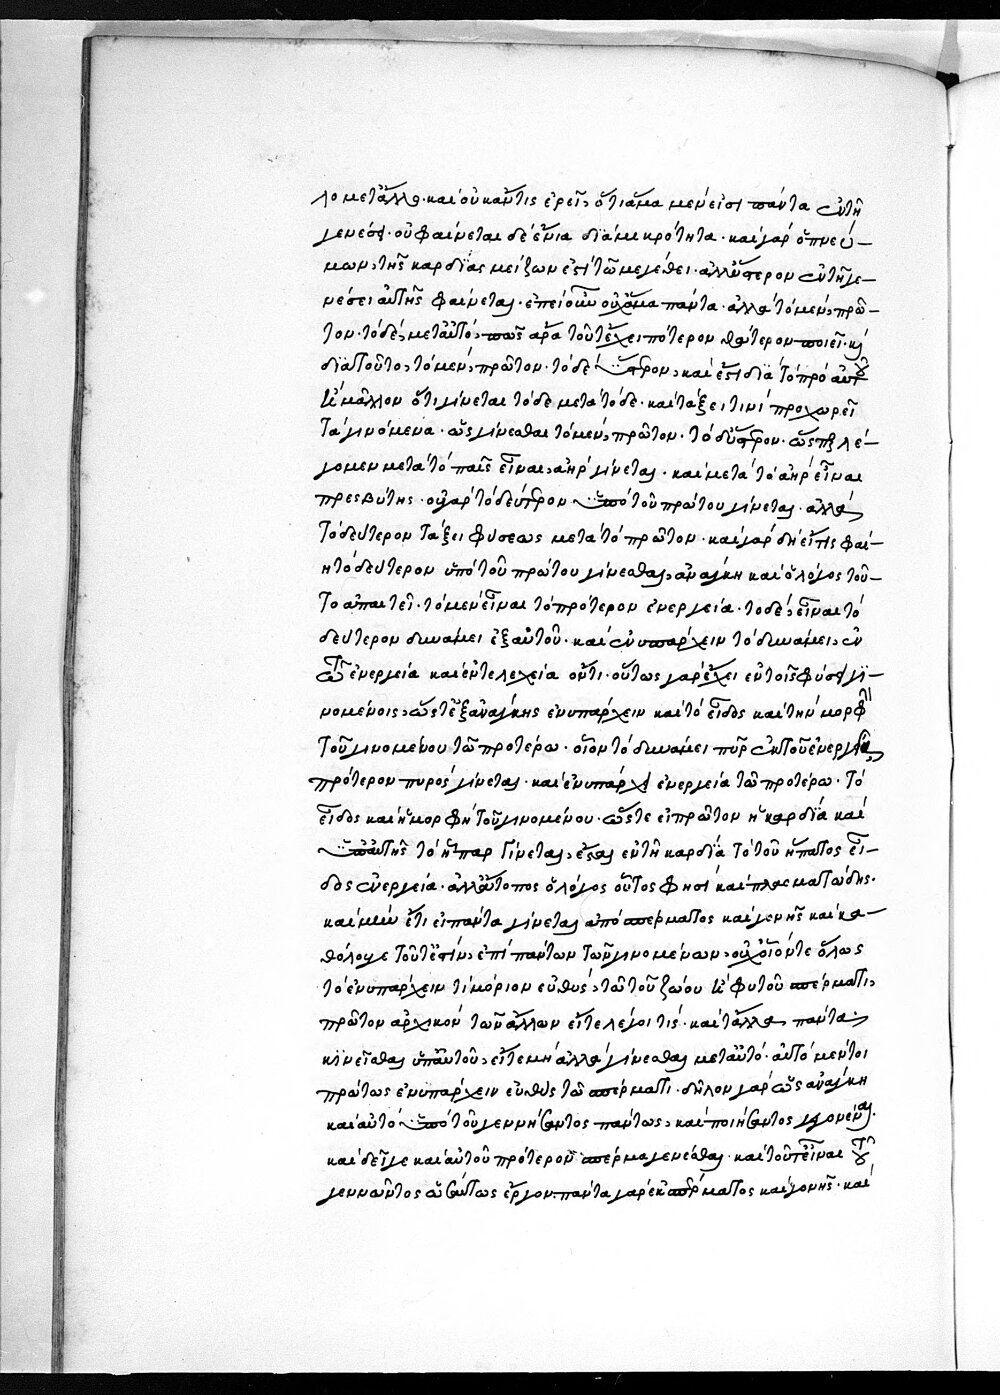 λο μετἄλλο· καὶ οὐκ ἄν τις ἐρεῖ, ὅτι ἅμα μέν εἰσι πάντα ἐν τῇ
γενέσει· οὐ φαίνεται δὲ ἔνια διὰ μικρότητα· καὶ γὰρ ὁ πνεύ-
μων, τῆς καρδίας μείζων ἐστὶ τῷ μεγέθει· ἀλλ' ὕστερον ἐν τῇ γε-
νέσει αὐτῆς φαίνεται· ἐπεὶ οὖν οὐχ ἅμα πάντα· ἀλλὰ τὸ μὲν, πρῶ-
τον· τὸ δὲ, μετ' αὐτὸ, πῶς ἄρα τοῦτ' ἔχει πότερον θάτερον ποιεῖ· καὶ
διὰ τοῦτο, τὸ μὲν, πρῶτον· τὸ δὲ ὕστερον, καὶ ἔστι διὰ τὸ πρὸ αὐτοῦ
ἢ μᾶλλον ὅτι γίνεται τόδε μετὰ τόδε· καὶ τάξει τινὶ προχωρεῖ
τὰ γινόμενα· ὡς γίνεσθαι τὸ μὲν, πρῶτον· τὸ δ' ὕστερον· ὥσπερ λέ-
γομεν μετὰ τὸ παῖς εἶναι, ἀνὴρ γίνεται· καὶ μετὰ τὸ ἀνὴρ εἶναι
πρεσβύτης· οὐ γὰρ τὸ δεύτερον ὑπὸ τοῦ πρώτου γίνεται· ἀλλὰ
τὸ δεύτερον τάξει φύσεως μετὰ τὸ πρῶτον· καὶ γὰρ δὴ εἴ τις φαί-
η τὸ δεύτερον ὑπὸ τοῦ πρώτου γίνεσθαι, ἀνάγκη καὶ ὁ λόγος τοῦ-
το ἀπαιτεῖ· τὸ μὲν εἶναι τὸ πρότερον ἐνεργεία· τὸ δὲ, εἶναι τὸ
δεύτερον δυνάμει ἐξ αὐτοῦ· καὶ ἐνυπάρχειν τὸ δυνάμει, ἐν
τῷ ἐνεργεία καὶ ἐντελεχεία ὄντι· οὕτως γὰρ ἔχει ἐν τοῖς φύσει γι-
νομένοις, ὥστ' ἐξ ἀνάγκης ἐνυπάρχειν καὶ τὸ εἶδος καὶ τὴν μορφὴν
τοῦ γινομένου τῷ προτέρω· οἷον τὸ δυνάμει πῦρ ἐκ τοῦ ἐνεργεία,
πρότερον πυρὸς γίνεται· καὶ ἐνυπάρχει ἐνεργεία τῷ προτέρω· τὸ
εἶδος καὶ ἡ μορφὴ τοῦ γινομένου· ὥστε εἰ πρῶτον ἡ καρδία καὶ
ὑπ' αὐτῆς τὸ ἧπαρ γίνεται, ἔσται ἐν τῇ καρδία τὸ τοῦ ἥπατος εἶ-
δος ἐνεργεία· ἀλλ' ἄτοπος ὁ λόγος οὗτος φησὶ καὶ πλασματώδης·
καὶ μὴν ἔτι εἰ πάντα γίνεται ἀπὸ σπέρματος καὶ γονῆς καὶ κα-
θόλου γε τοῦτ' ἔστιν, ἐπὶ πάντων τῶν γινομένων, οὐχ οἷόν τε ὅλως
τὸ ἐνυπάρχειν τὶ μόριον εὐθὺς, τῷ τοῦ ζώου ἢ φυτοῦ σπέρματι,
πρῶτον ἀρχικὸν τῶν ἄλλων εἴτε λέγοι τίς· καὶ τἄλλα πάντα,
κινεῖσθαι ὑπ' αὐτοῦ, εἴτε μὴ ἀλλὰ γίνεσθαι μετ' αὐτό· αὐτὸ μέντοι
πρώτως ἐνυπάρχειν εὐθὺς τῷ σπέρματι· δῆλον γὰρ ὡς ἀνάγκη
καὶ αὐτὸ ὑπὸ τοῦ γεννήσαντος πάντως, καὶ ποιήσαντος γεγονέναι·
καὶ δεῖ γε καὶ αὐτοῦ πρότερον σπέρμα γενέσθαι· καὶ τοῦτ' εἶναι τοῦ
γεννῶντος ὡσαύτως ἔργον· πάντα γὰρ ἐκ σπέρματος καὶ γονῆς· καὶ